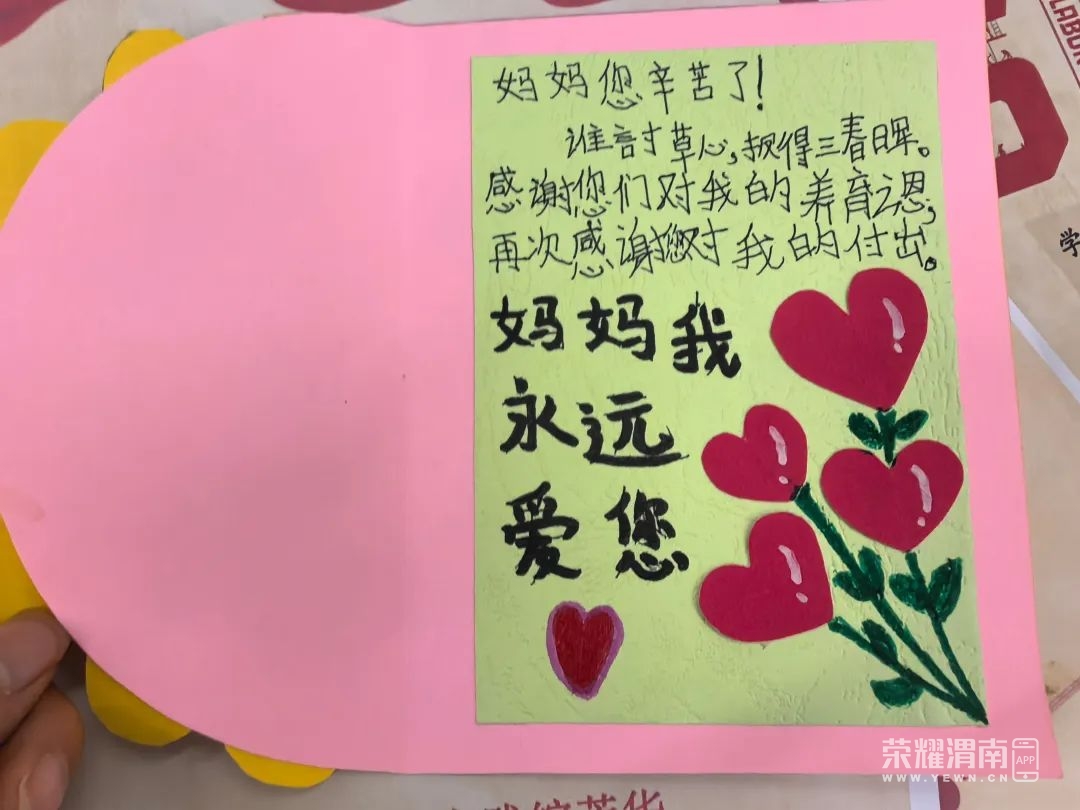 妈妈您辛苦了!
谁討草心,报得三春晖。
感谢您们对我的养育之恩,
再次感谢您对我的付出。
妈妈我
永远
爱您
LABOR
学
荣耀渭南APP
WWW.YEWN.CN